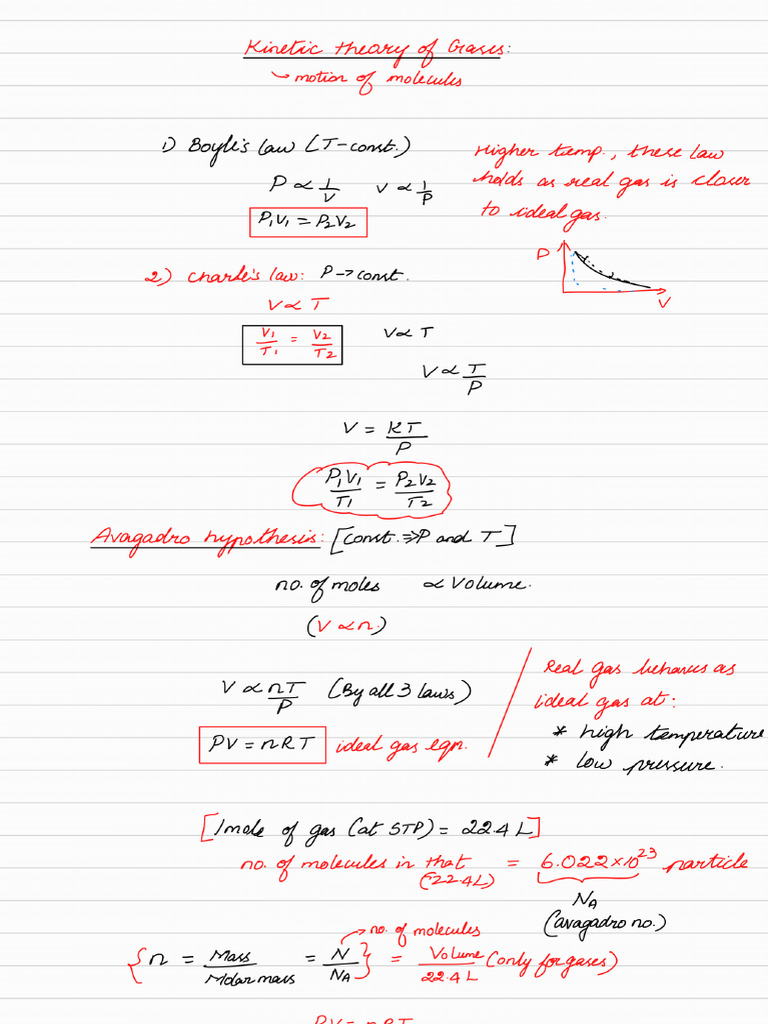 Kinetic theory of Gases:
↳ motion of molecules
1) Boyle's law (T-const.)
P ∝ 1/V   V ∝ 1/P
P₁V₁ = P₂V₂
Higher temp., these law
holds as real gas is closer
to ideal gas.
P
V
2) Charle's law: P → const.
V ∝ T
V₁/T₁ = V₂/T₂   V ∝ T
V ∝ T/P
V = KT/P
P₁V₁/T₁ = P₂V₂/T₂
Avagadro hypothesis: [const. ⇒ P and T]
no. of moles ∝ Volume.
(V ∝ n)
V ∝ nT/P (By all 3 laws)
PV = nRT ideal gas eqn.
Real gas behaves as
ideal gas at:
* high temperature
* low pressure.
[1 mole of gas (at STP) = 22.4 L]
no. of molecules in that (22.4L) = 6.022×10²³ particle
N_A
(avagadro no.)
→ no. of molecules
{n = Mass/Molar mass = N/N_A} = Volume/22.4 L (only for gases)
PV = nRT